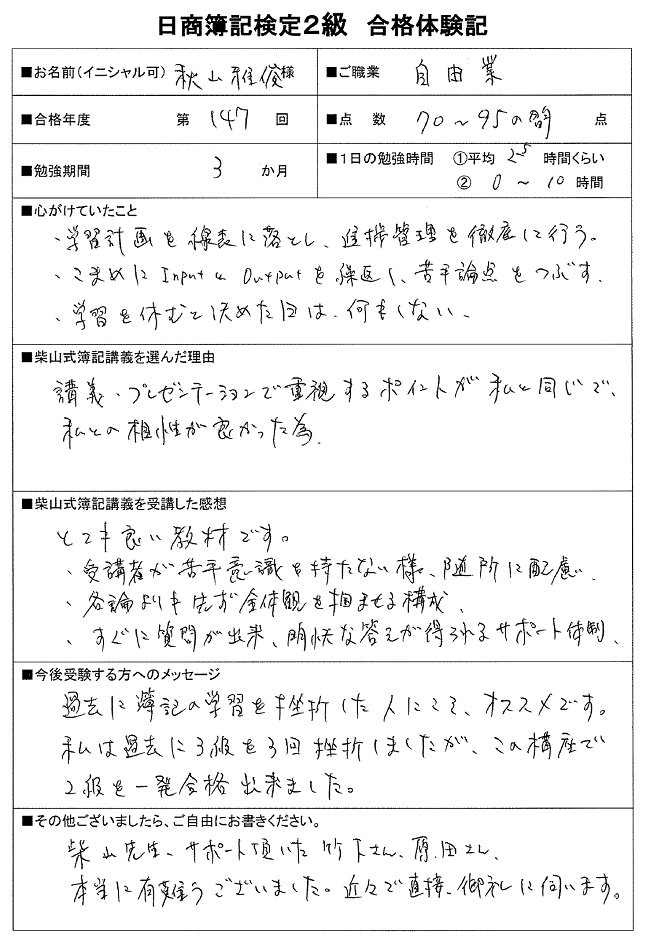 日商簿記検定2級 合格体験記
■お名前(イニシャル可) 秋山雅俊様 ■ご職業 自由業
■合格年度 第 147 回 ■点 数 70～95の間 点
■勉強期間 3 か月 ■1日の勉強時間 ①平均 2.5 時間くらい
② 0 ～ 10 時間
■心がけていたこと
・学習計画を線表に落とし、進捗管理を徹底に行う。
・こまめに Input と Output を繰返し、苦手論点をつぶす.
・学習を休むと決めた日は、何もしない、
■柴山式簿記講義を選んだ理由
講義・プレゼンテーションで重視するポイントが私と同じで、
私との相性が良かった為.
■柴山式簿記講義を受講した感想
とても良い教材です。
・受講者が苦手意識を持たない様、随所に配慮.
・各論よりも先ず全体観を掴ませる構成、
・すぐに質問が出来、明快な答えが得られるサポート体制、
■今後受験する方へのメッセージ
過去に簿記の学習を挫折した人にこそ、オススメです。
私は過去に3級を3回挫折しましたが、この講座で
2級を一発合格出来ました。
■その他ございましたら、ご自由にお書きください。
柴山先生、サポート頂いた竹下さん、原田さん、
本当に有難うございました。近々で直接、御礼に伺います。